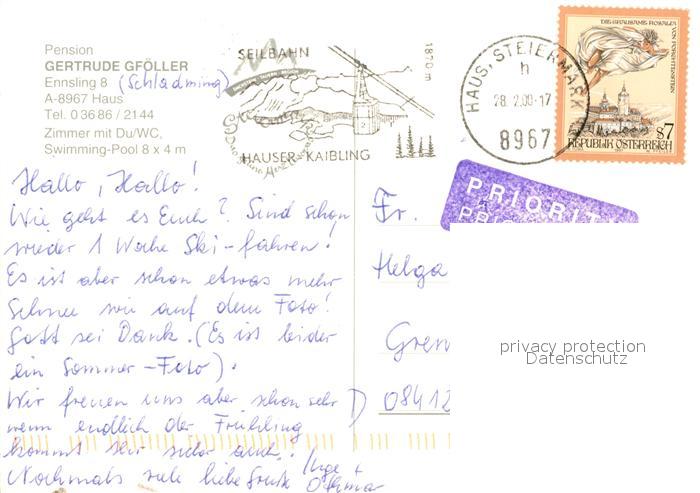 Pension
GERTRUDE GFÖLLER
Ennsling 8 (Schladming)
A-8967 Haus
Tel. 0 36 86 / 21 44
Zimmer mit Du/WC,
Swimming-Pool 8 x 4 m
SEILBAHN
1870 m
HAUSER-KAIBLING
HAUS, STEIERMARK
h
28. 2.00-17
8967
DIE GRAUSAME ROSALIA
VON FORCHTENSTEIN
S7
REPUBLIK ÖSTERREICH
PRIORITY
Hallo, Hallo!
Wie geht es Euch? Sind schon
wieder 1 Woche Ski-fahren!
Es ist aber schon etwas mehr
Schnee wie auf dem Foto!
Gott sei Dank. (Es ist leider
ein Sommer-Foto).
Wir freuen uns aber schon sehr
wenn endlich der Frühling
kommt
Nochmals viele liebe Grüße Inge +
Othmar
Fr.
Helga
Gren
D 08412
privacy protection
Datenschutz